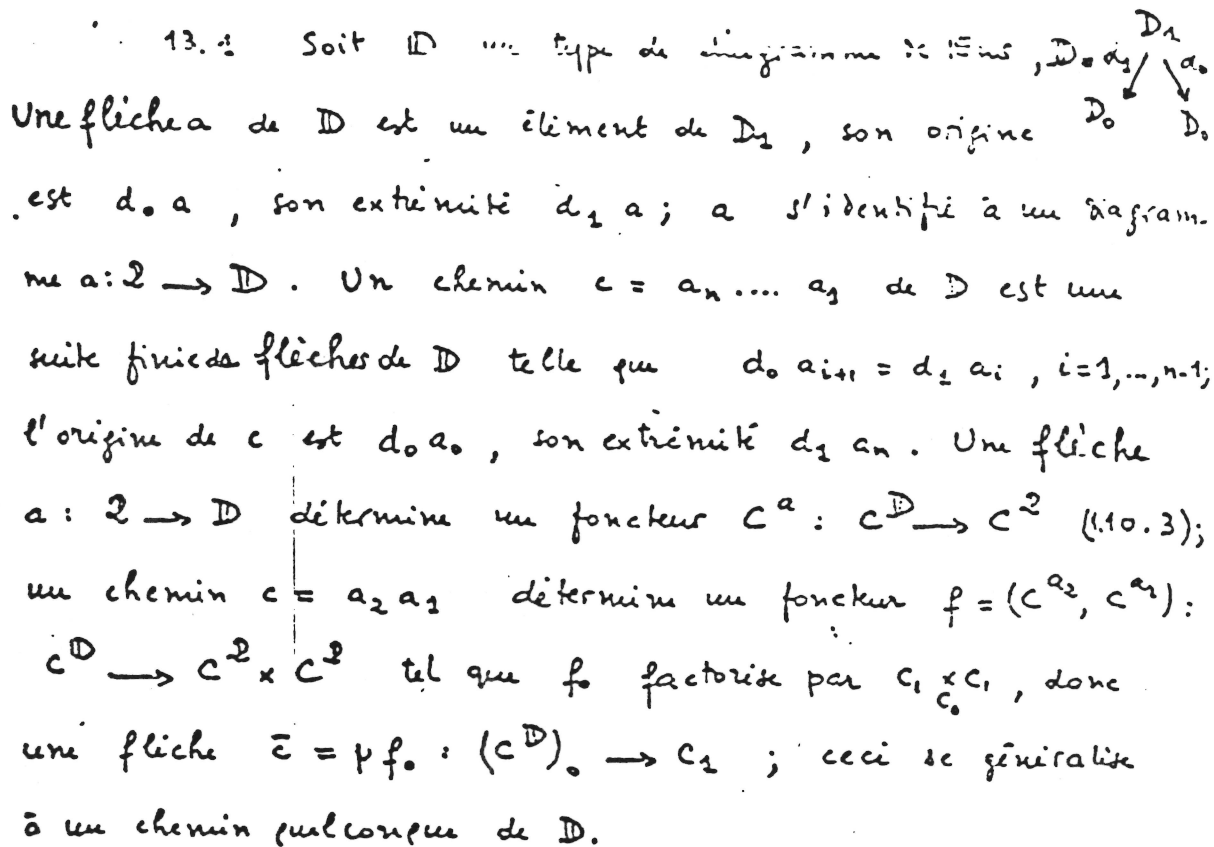 13.1 Soit 𝔻 un type de diagramme , D₀ d₁ D₁ d₀
Une flèche a de 𝔻 est un élément de D₁ , son origine D₀ D₀
est d₀ a , son extrémité d₁ a ; a s'identifie à un diagram-
me a : 2 → 𝔻 . Un chemin c = aₙ .... a₁ de 𝔻 est une
suite finie de flèches de 𝔻 telle que d₀ aᵢ₊₁ = d₁ aᵢ , i=1,...,n-1;
l'origine de c est d₀ a₀ , son extrémité d₁ aₙ . Une flèche
a : 2 → 𝔻 détermine un foncteur C^a : C^𝔻 → C^2 (1.10.3);
un chemin c = a₂ a₁ détermine un foncteur f = (C^a₂, C^a₁) :
C^𝔻 → C^2 × C^2 tel que f₀ factorise par C₁ ×_C₀ C₁ , donc
une flèche c̄ = p f₀ : (C^𝔻)₀ → C₁ ; ceci se généralise
à un chemin quelconque de 𝔻.